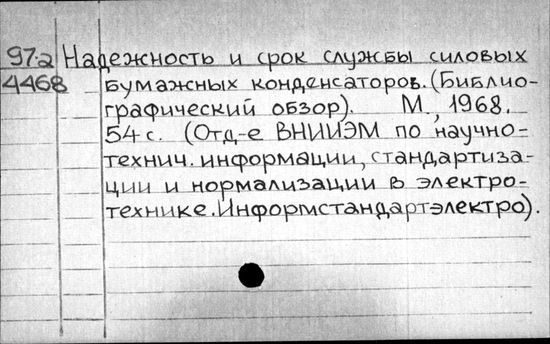 97-2 Надежность и срок службы силовых
4468 бумажных конденсаторов. (Библио-
графический обзор). М., 1968.
54 с. (Отд-е ВНИИЭМ по научно-
технич. информации, стандартиза-
ции и нормализации в электро-
технике. Информстандартэлектро).